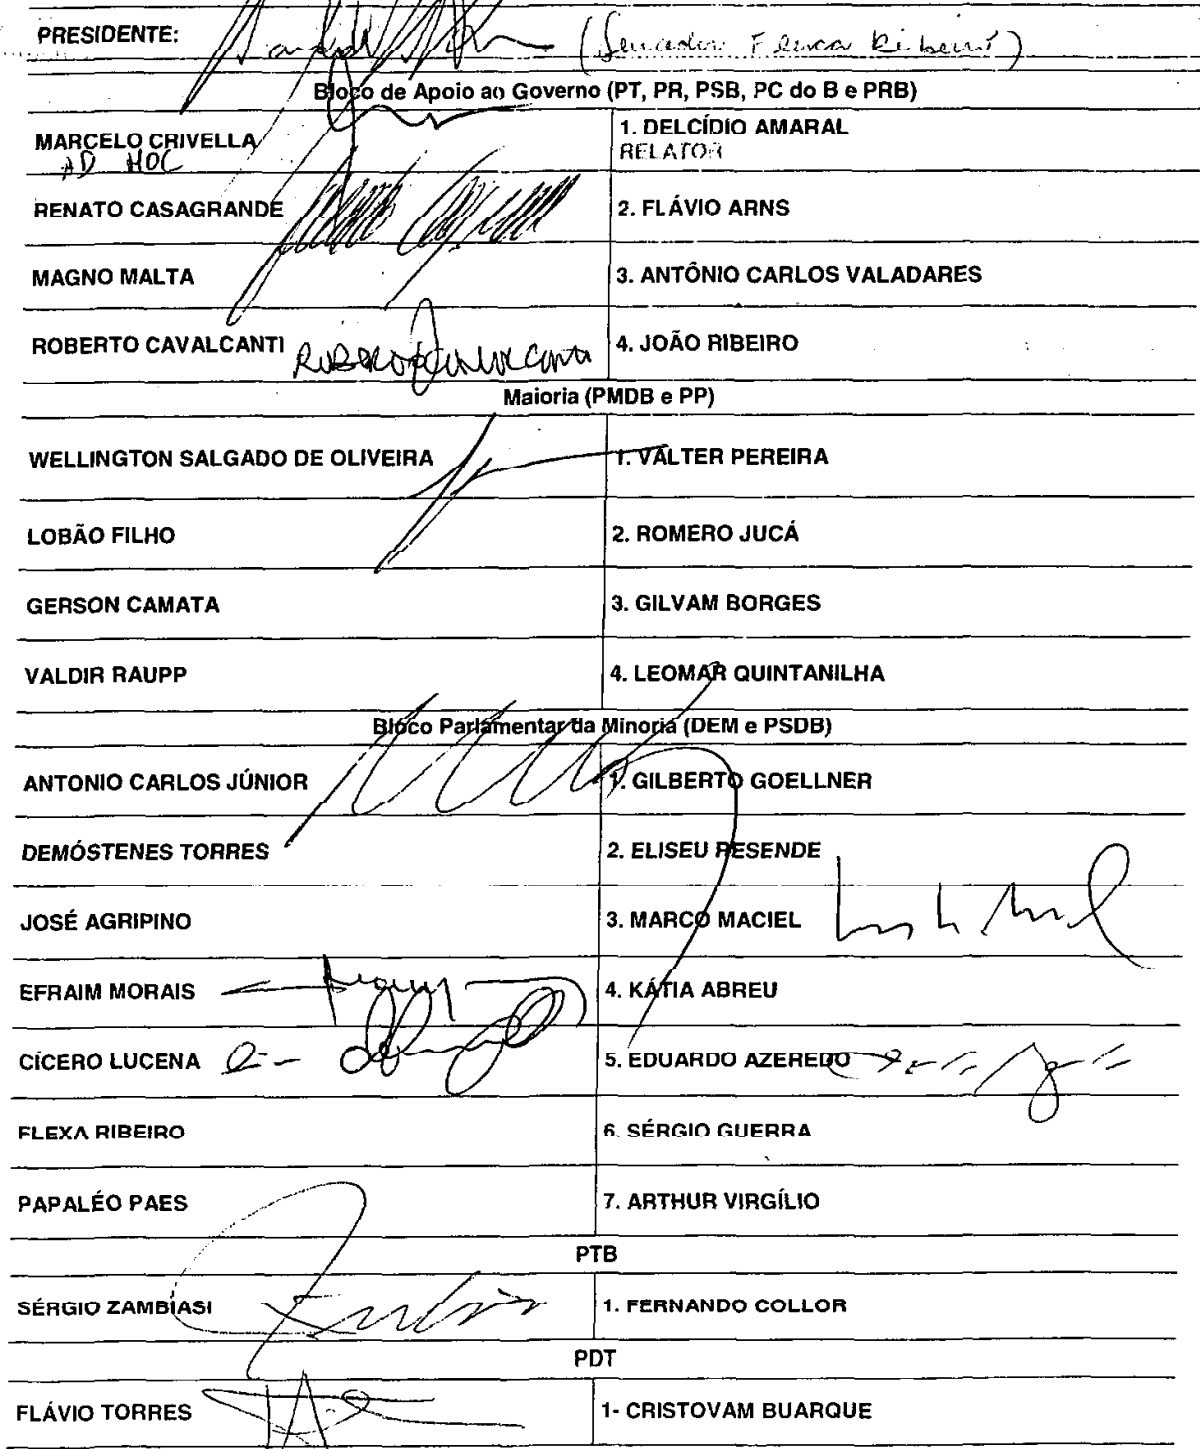 PRESIDENTE: (Senador Flexa Ribeiro)
Bloco de Apoio ao Governo (PT, PR, PSB, PC do B e PRB)
MARCELO CRIVELLA 1. DELCÍDIO AMARAL
AD HOC RELATOR
RENATO CASAGRANDE 2. FLÁVIO ARNS
MAGNO MALTA 3. ANTÔNIO CARLOS VALADARES
ROBERTO CAVALCANTI Roberto Cavalcanti 4. JOÃO RIBEIRO
Maioria (PMDB e PP)
WELLINGTON SALGADO DE OLIVEIRA 1. VALTER PEREIRA
LOBÃO FILHO 2. ROMERO JUCÁ
GERSON CAMATA 3. GILVAM BORGES
VALDIR RAUPP 4. LEOMAR QUINTANILHA
Bloco Parlamentar da Minoria (DEM e PSDB)
ANTONIO CARLOS JÚNIOR 1. GILBERTO GOELLNER
DEMÓSTENES TORRES 2. ELISEU RESENDE
JOSÉ AGRIPINO 3. MARCO MACIEL
EFRAIM MORAIS 4. KÁTIA ABREU
CÍCERO LUCENA 5. EDUARDO AZEREDO
FLEXA RIBEIRO 6. SÉRGIO GUERRA
PAPALÉO PAES 7. ARTHUR VIRGÍLIO
PTB
SÉRGIO ZAMBIASI 1. FERNANDO COLLOR
PDT
FLÁVIO TORRES 1- CRISTOVAM BUARQUE